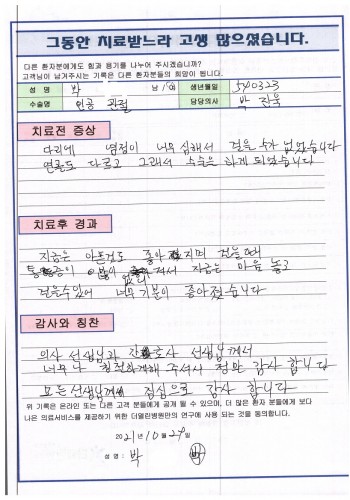 그동안 치료받느라 고생 많으셨습니다.
다른 환자분에게도 힘과 용기를 나누어 주시겠습니까?
고객님이 남겨주시는 기록은 다른 환자분들의 희망이 됩니다.
성 명 박 남 / 여 생년월일 540323
수술명 인공 관절 담당의사 박 진욱
치료전 증상
다리에 염점이 너무 심해서 걸을 수가 없었습니다
연골도 다르고 그래서 수술을 하게 되었습니다
치료후 경과
지금은 아픈것도 좋아 지며 걸을때
통증이 많이 없어져서 지금은 마음 놓고
걸을수있어 너무 기분이 좋아졌습니다
감사와 칭찬
의사 선생님과 간호사 선생님께서
너무나 친절하게해 주셔서 정말 감사 합니다
모든선생님께 진심으로 감사 합니다
위 기록은 온라인 또는 다른 고객 분들에게 공개 될 수 있으며, 더 많은 환자 분들에게 보다
나은 의료서비스를 제공하기 위한 더열린병원만의 연구에 사용 되는 것을 동의합니다.
2021년 10월 29일
성 명 : 박 박